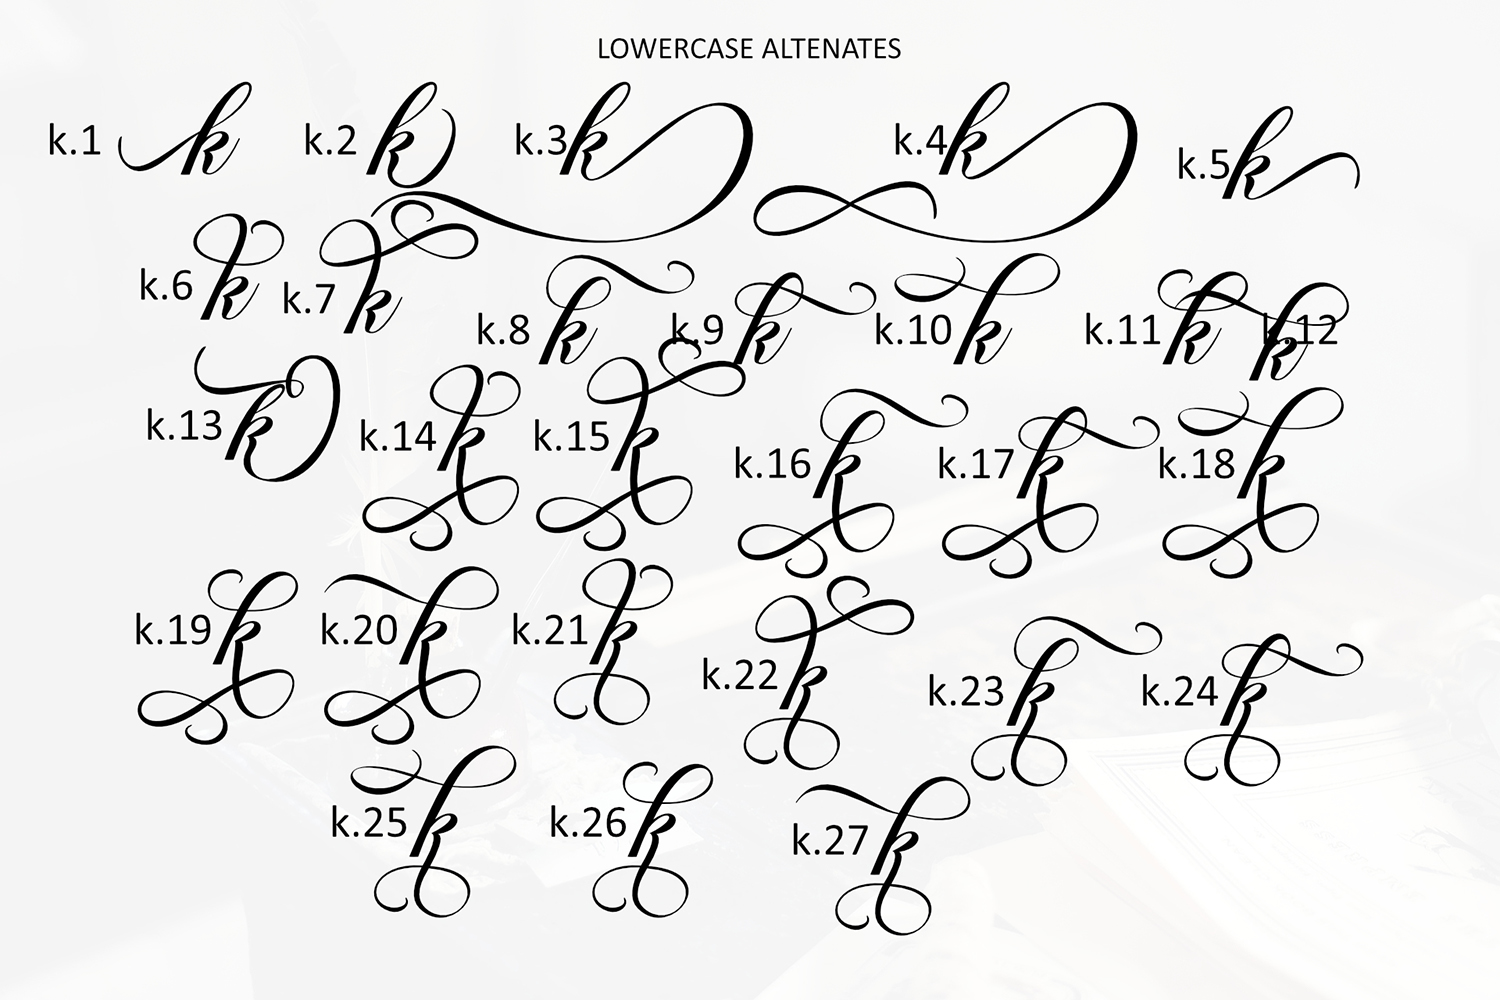 LOWERCASE ALTENATES
k.1 k k.2 k k.3 k k.4 k k.5 k
k.6 k k.7 k k.8 k k.9 k k.10 k k.11 k k.12 k
k.13 k k.14 k k.15 k k.16 k k.17 k k.18 k
k.19 k k.20 k k.21 k k.22 k k.23 k k.24 k
k.25 k k.26 k k.27 k